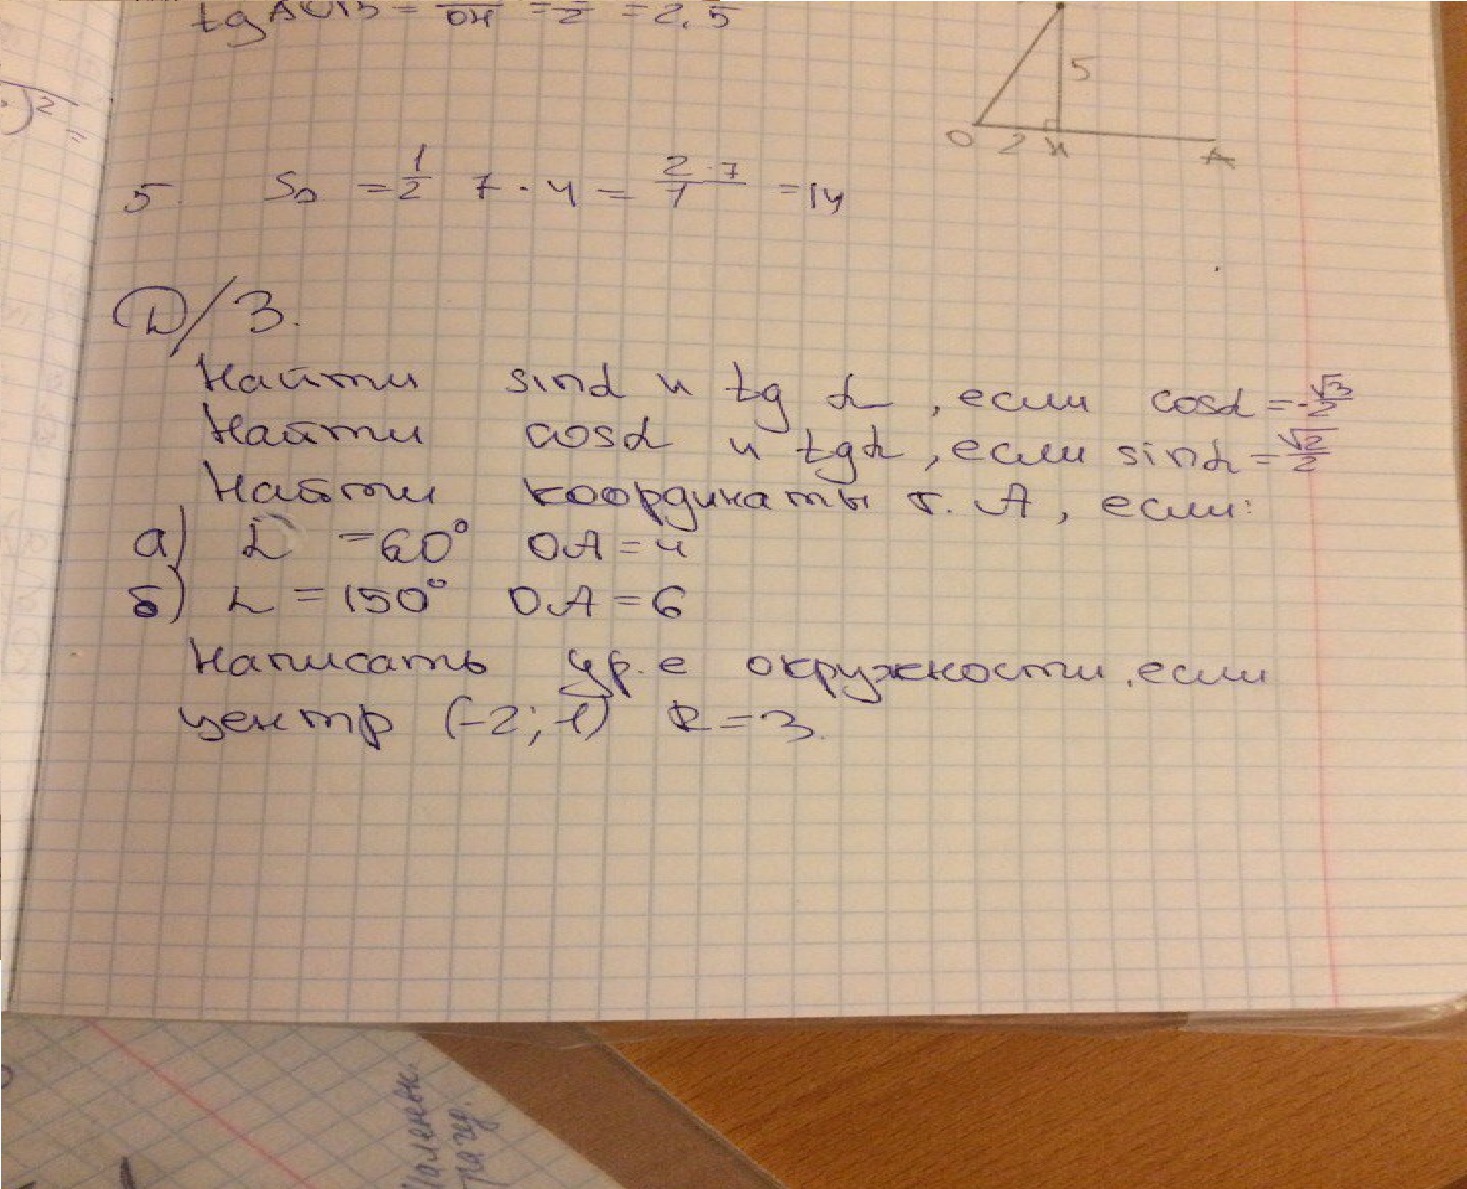 tg AOB = /OH = /2 = 2.5
)² =
5
O 2 H A
5. S△ = 1/2 7 · 4 = 2·7/1 = 14
Д/З.
Найти sinα и tg α, если cosα = -√3/2
Найти cosα и tgα, если sinα = √2/2
Найти координаты т. А, если:
а) α = 60° OA = 4
б) α = 150° OA = 6
Написать ур.е окружности, если
центр (-2; 1) R = 3.
Маленьк.